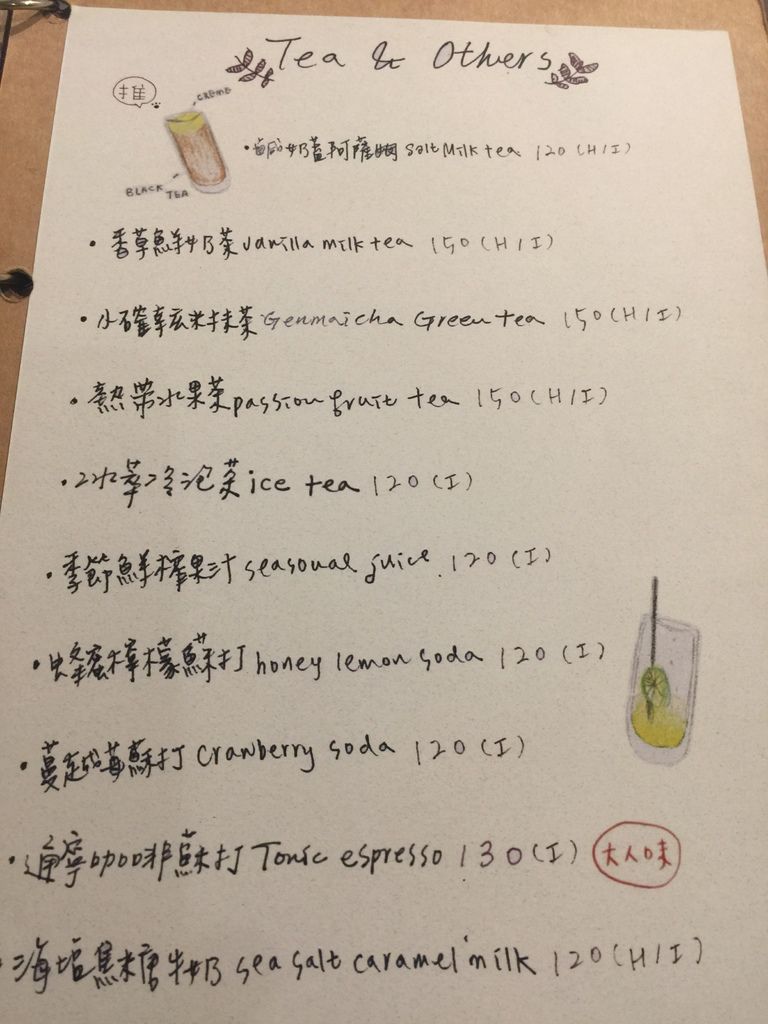 Tea & Others
推
CREME
BLACK TEA
・鹹奶蓋阿薩姆 Salt Milk tea 120 (H/I)
・香草鮮奶茶 Vanilla milk tea 150 (H/I)
・小確幸玄米抹茶 Genmaicha Green tea 150 (H/I)
・熱帶水果茶 passion fruit tea 150 (H/I)
・冰萃冷泡茶 ice tea 120 (I)
・季節鮮榨果汁 seasonal juice 120 (I)
・蜂蜜檸檬蘇打 honey lemon soda 120 (I)
・蔓越莓蘇打 Cranberry soda 120 (I)
・通寧咖啡蘇打 Tonic espresso 130 (I) 大人味
・海塩焦糖牛奶 sea salt caramel milk 120 (H/I)